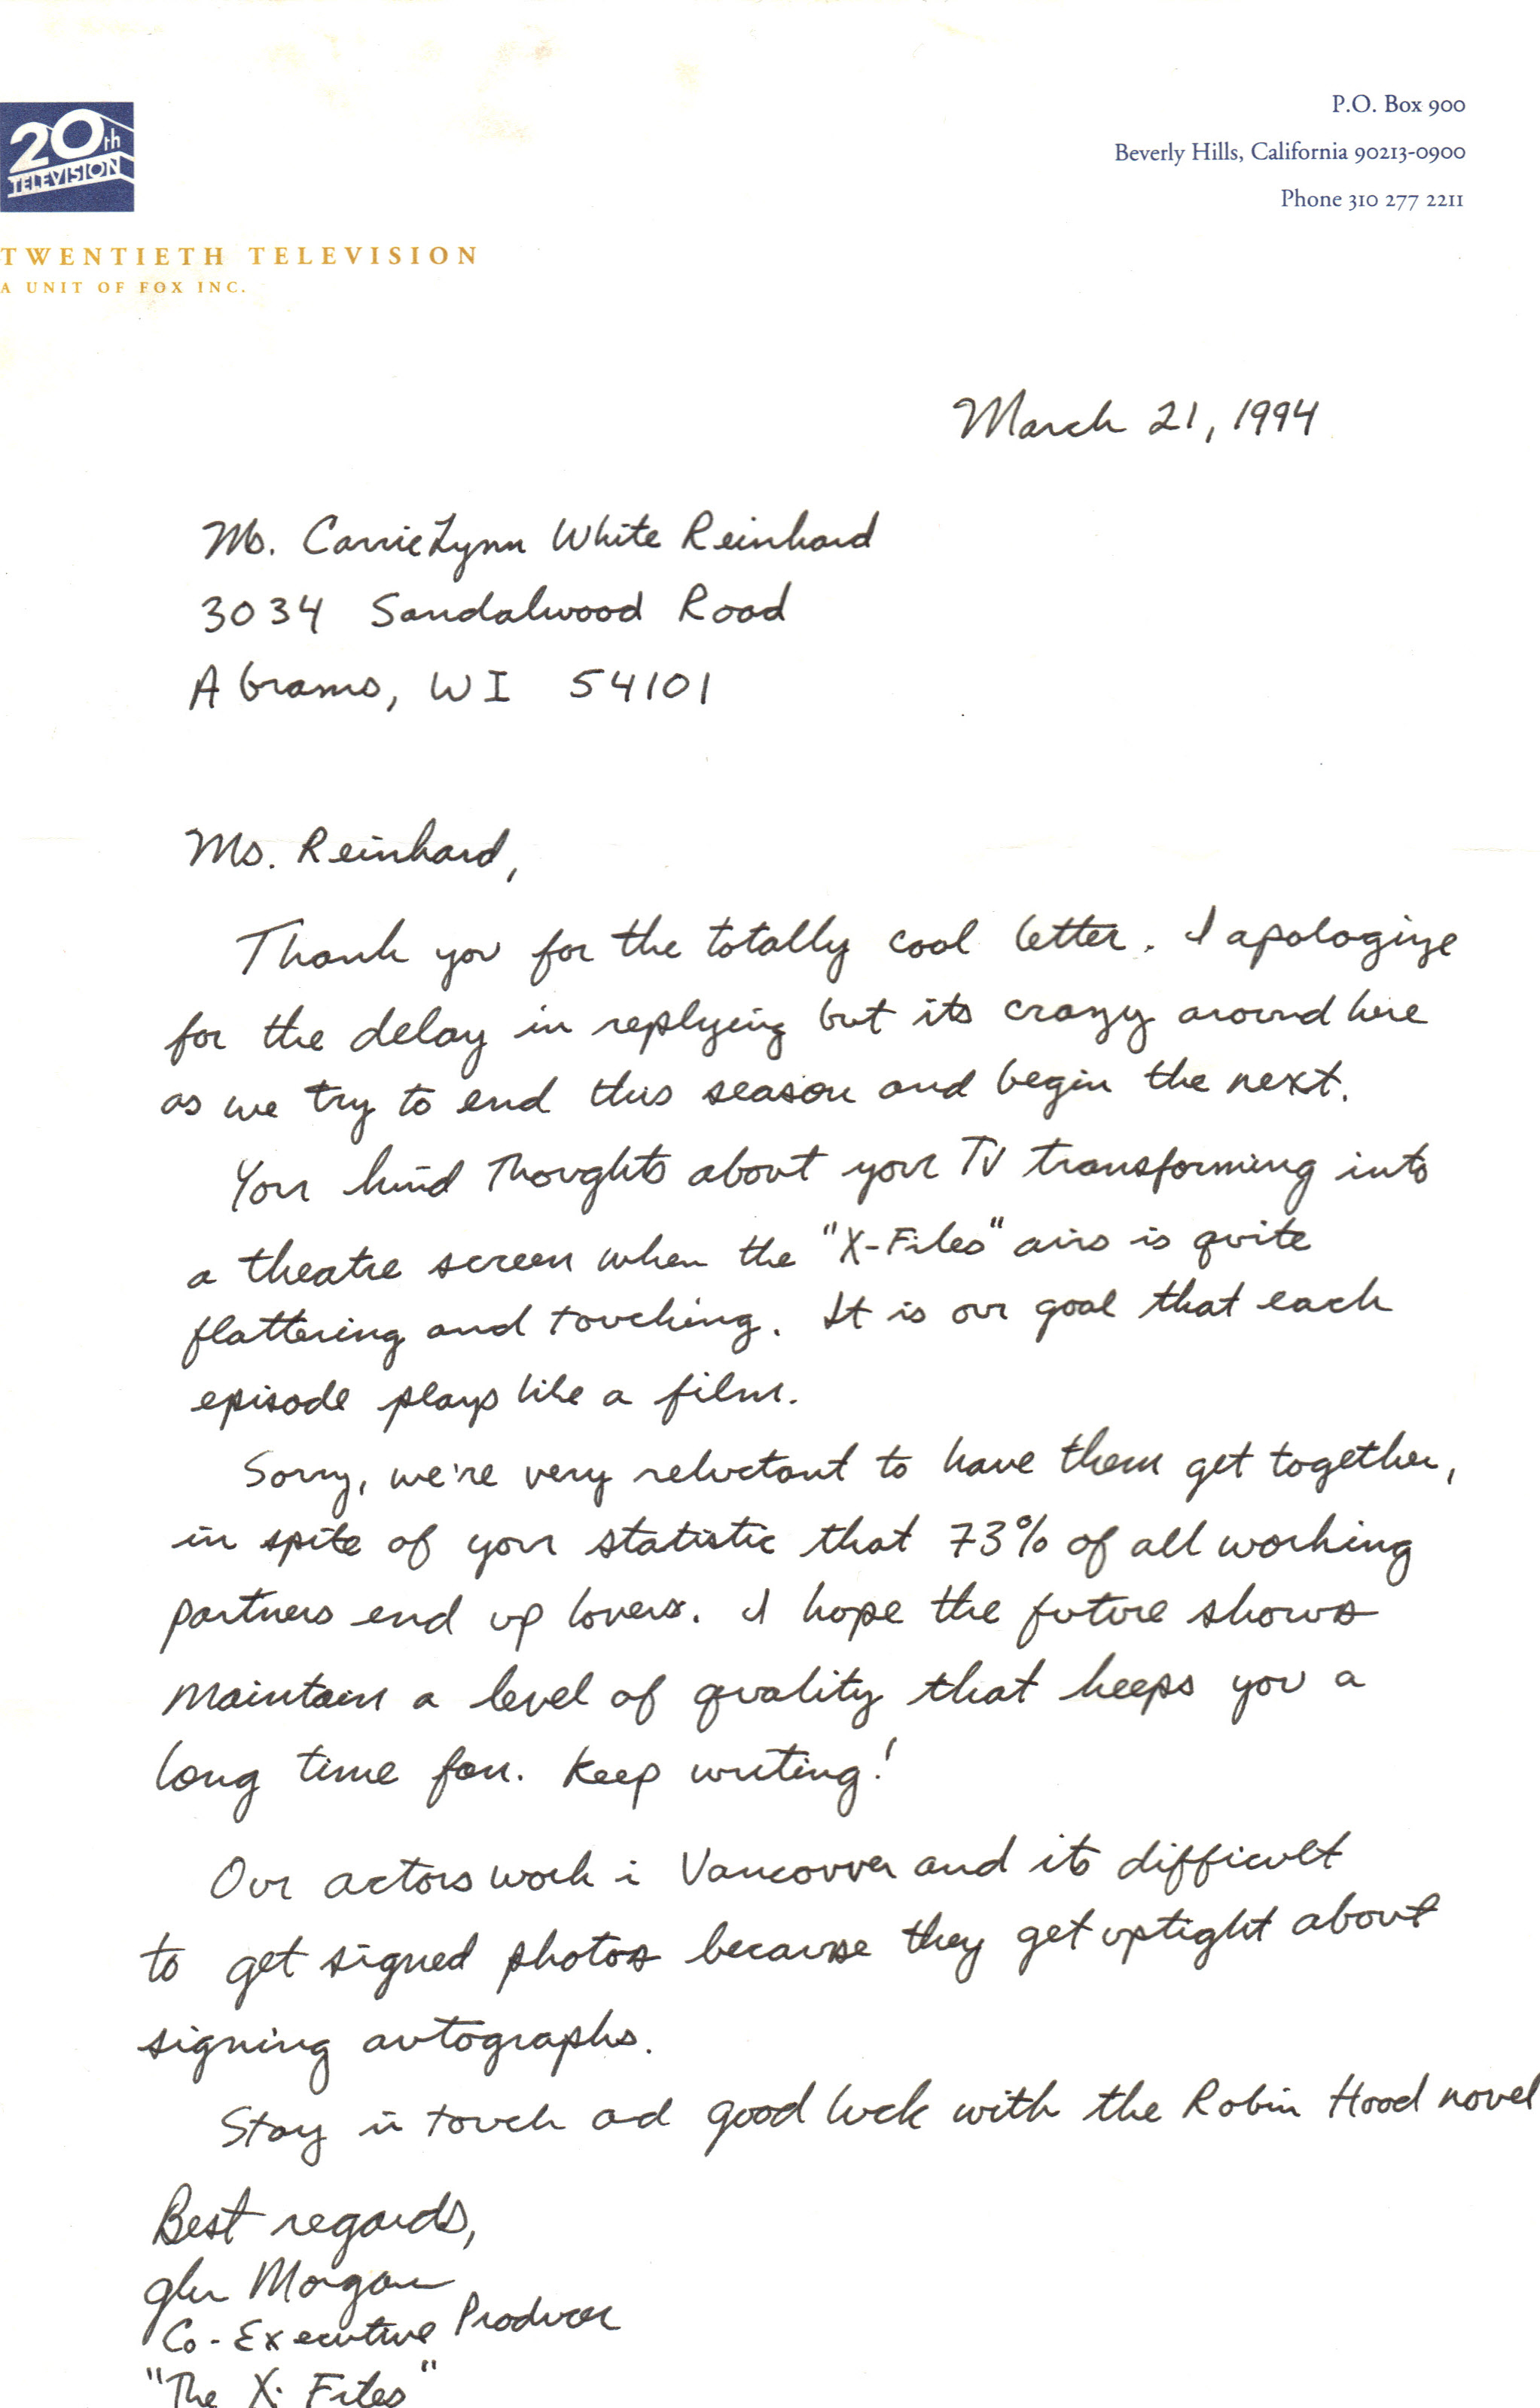 20th
TELEVISION
TWENTIETH TELEVISION
A UNIT OF FOX INC.
P.O. Box 900
Beverly Hills, California 90213-0900
Phone 310 277 2211
March 21, 1994
Ms. CarrieLynn White Reinhard
3034 Sandalwood Road
Abrams, WI 54101
Ms. Reinhard,
Thank you for the totally cool letter. I apologize
for the delay in replying but its crazy around here
as we try to end this season and begin the next.
Your kind thoughts about your TV transforming into
a theatre screen when the "X-Files" airs is quite
flattering and touching. It is our goal that each
episode plays like a film.
Sorry, we're very reluctant to have them get together,
in spite of your statistic that 73% of all working
partners end up lovers. I hope the future shows
maintain a level of quality that keeps you a
long time fan. Keep writing!
Our actors work i Vancouver and its difficult
to get signed photos because they get uptight about
signing autographs.
Stay in touch ad good luck with the Robin Hood novel
Best regards,
Glen Morgan
Co-Executive Producer
"The X-Files"